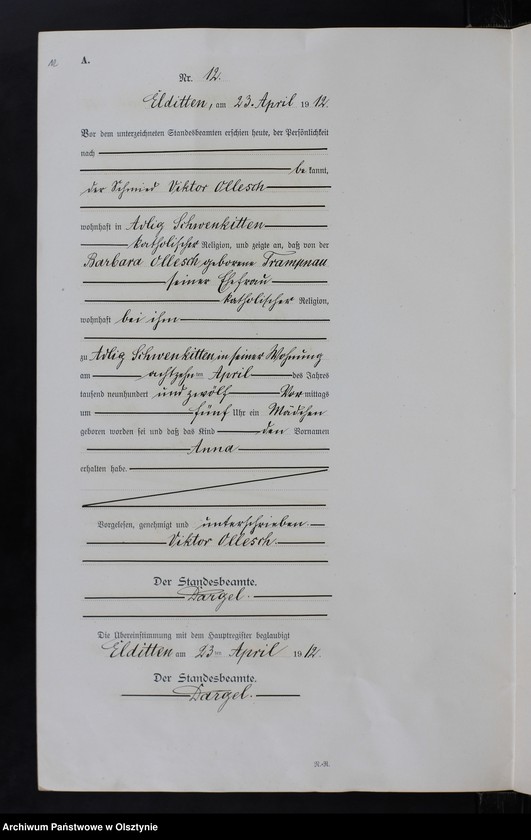 12
A.
Nr. 12.
Elditten, am 23. April 1912.
Vor dem unterzeichneten Standesbeamten erschien heute, der Persönlichkeit
nach
be kannt,
der Schmied Viktor Ollesch
wohnhaft in Adlig Schwenkitten
katholischer Religion, und zeigte an, daß von der
Barbara Ollesch geborene Trampnau
seiner Ehefrau
katholischer Religion,
wohnhaft bei ihm
zu Adlig Schwenkitten, in seiner Wohnung
am achtzehnten April des Jahres
tausend neunhundert und zwölf Vor mittags
um fünf Uhr ein Mädchen
geboren worden sei und daß das Kind den Vornamen
Anna
erhalten habe.
Vorgelesen, genehmigt und unterschrieben.
Viktor Ollesch.
Der Standesbeamte.
Dargel.
Die Übereinstimmung mit dem Hauptregister beglaubigt
Elditten am 23ten April 1912.
Der Standesbeamte.
Dargel.
Archiwum Państwowe w Olsztynie